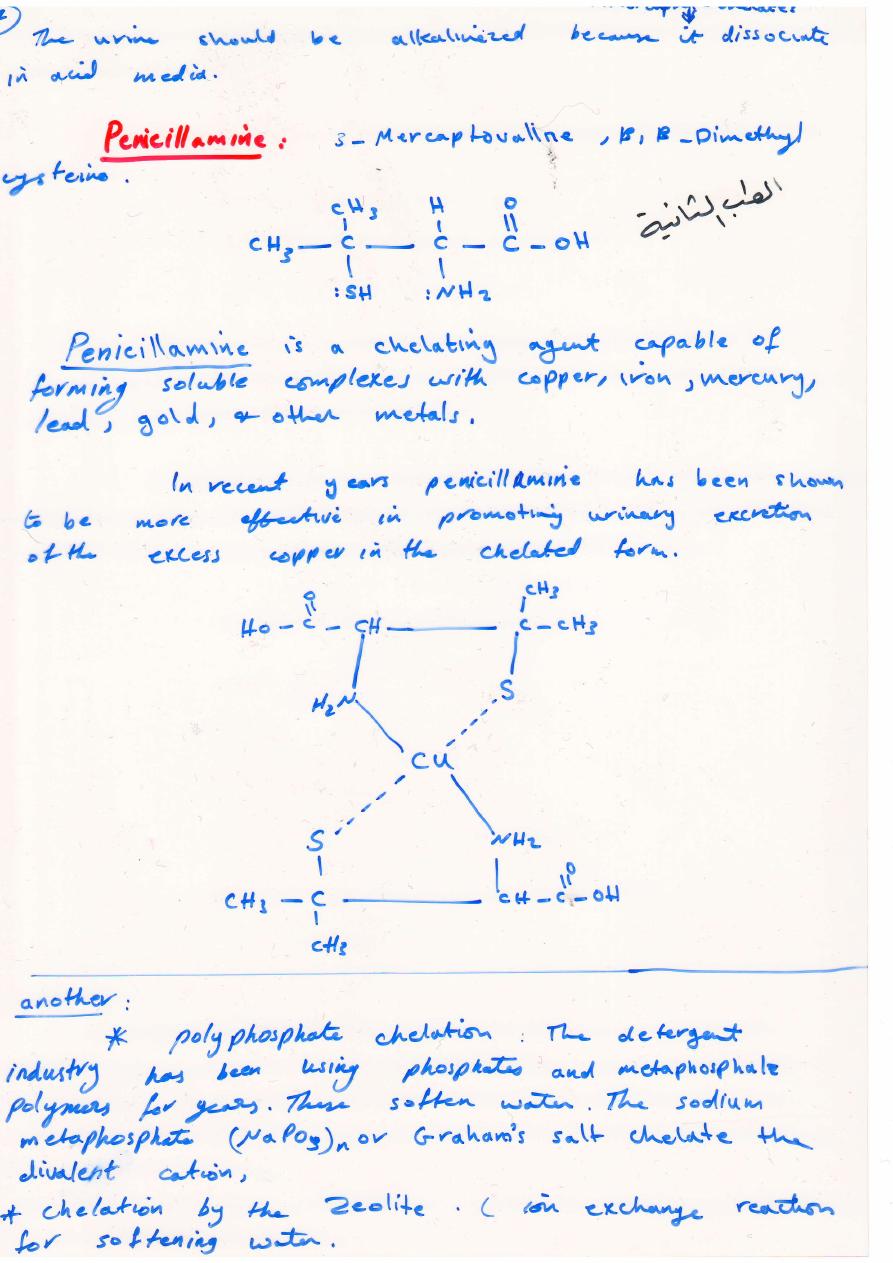 The urine should be alkalinized because it dissociate
in acid media.
Penicillamine : 3-Mercaptovaline , B, B-Dimethyl
cysteine .
CH3 H O
CH3 — C — C — C - OH
:SH :NH2
الطب الثانية
Penicillamine is a chelating agent capable of
forming soluble complexes with copper, iron, mercury,
lead, gold, & other metals.
In recent years penicillamine has been shown
to be more effective in promoting urinary excretion
of the excess copper in the chelated form.
O CH3
HO - C - CH — C - CH3
H2N S
CU
S NH2
O
CH3 - C — CH - C - OH
CH3
another :
* polyphosphate chelation : The detergent
industry has been using phosphates and metaphosphate
polymers for years. These soften water. The sodium
metaphosphate (NaPO3)n or Graham's salt chelate the
divalent cation,
* chelation by the Zeolite . ( ion exchange reaction
for softening water.